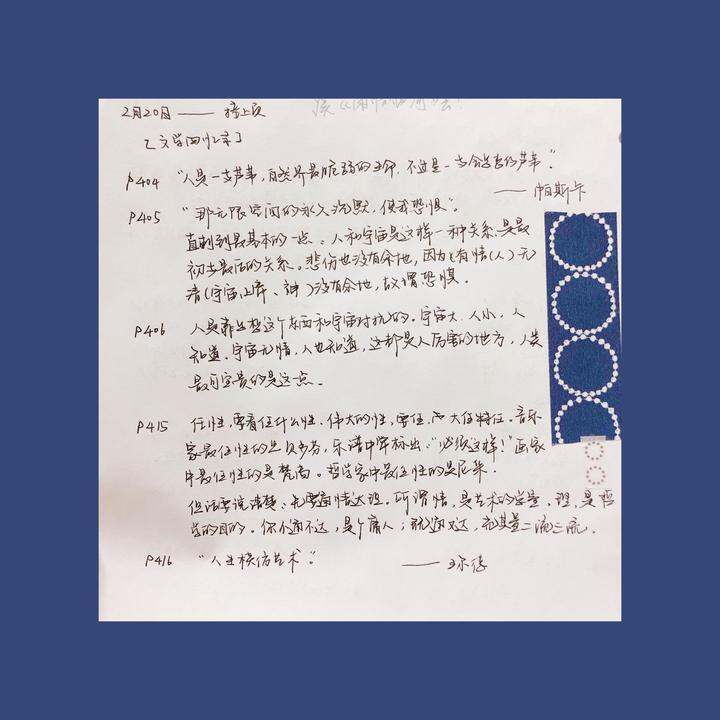 2月20日 —— 接上页
【文学回忆录】
P404 "人是一支芦苇，自然界最脆弱的生命，不过是一支会思考的芦苇"。
—— 帕斯卡
P405 "那无限空间的永久沉默，使我恐惧"。
直刺到最基本的一点。人和宇宙是这样一种关系，是最
初也是最后的关系。悲伤也没有余地，因为（有情（人）无
情（宇宙、上帝、神）没有余地，故谓恐惧。
P406 人是靠思想这个东西和宇宙对抗的。宇宙大，人小，人
知道。宇宙无情，人也知道，这都是人厉害的地方，人类
最可宝贵的是这一点。
P415 任性，要看任什么性。伟大的性，要任，大任特任。音乐
家最任性的是贝多芬，乐谱中军标出："必须这样！"画家
中最任性的是梵高。哲学家中最任性的是尼采。
但话要说清楚，也要通情达理。所谓情，是艺术的学养，理，是哲
学的目的。你不通不达，是个庸人；就通就达，尤其量二流三流。
P416 "人生模仿艺术"。 —— 王尔德